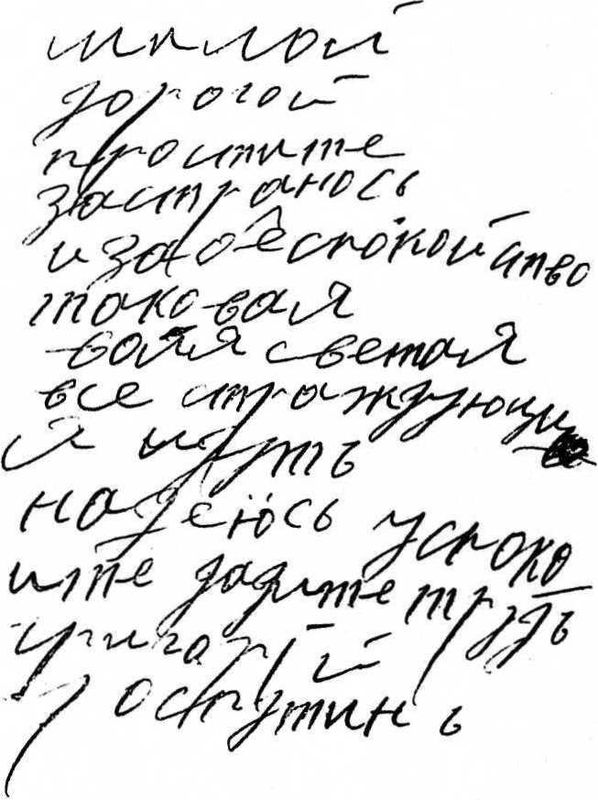 милой
дорогой
простите
застранось
и за обеспокойство
таковая
воля светая
все стражующи
я идуть
надеюсь успоко
ите дадите трудъ
григорий
роспутинъ